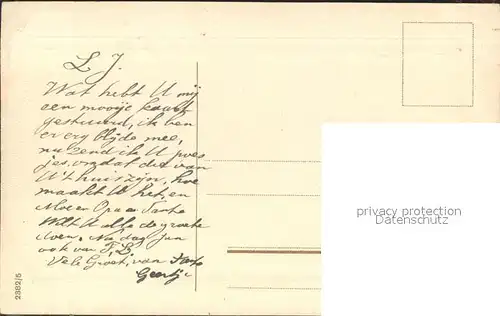 L J.
Wat hebt U mij
een mooije kaart
gestuurd, ik ben
er erg blijde mee,
nu zend ik U poes
jes, omdat dit van
U thuis zijn, hoe
maakt U het, en
Moe en Opa en Tante
Wilt U alle de groete
doen. Nu dag Jan
ook van
Vele Groet, van Tante
2382/5
privacy protection
Datenschutz